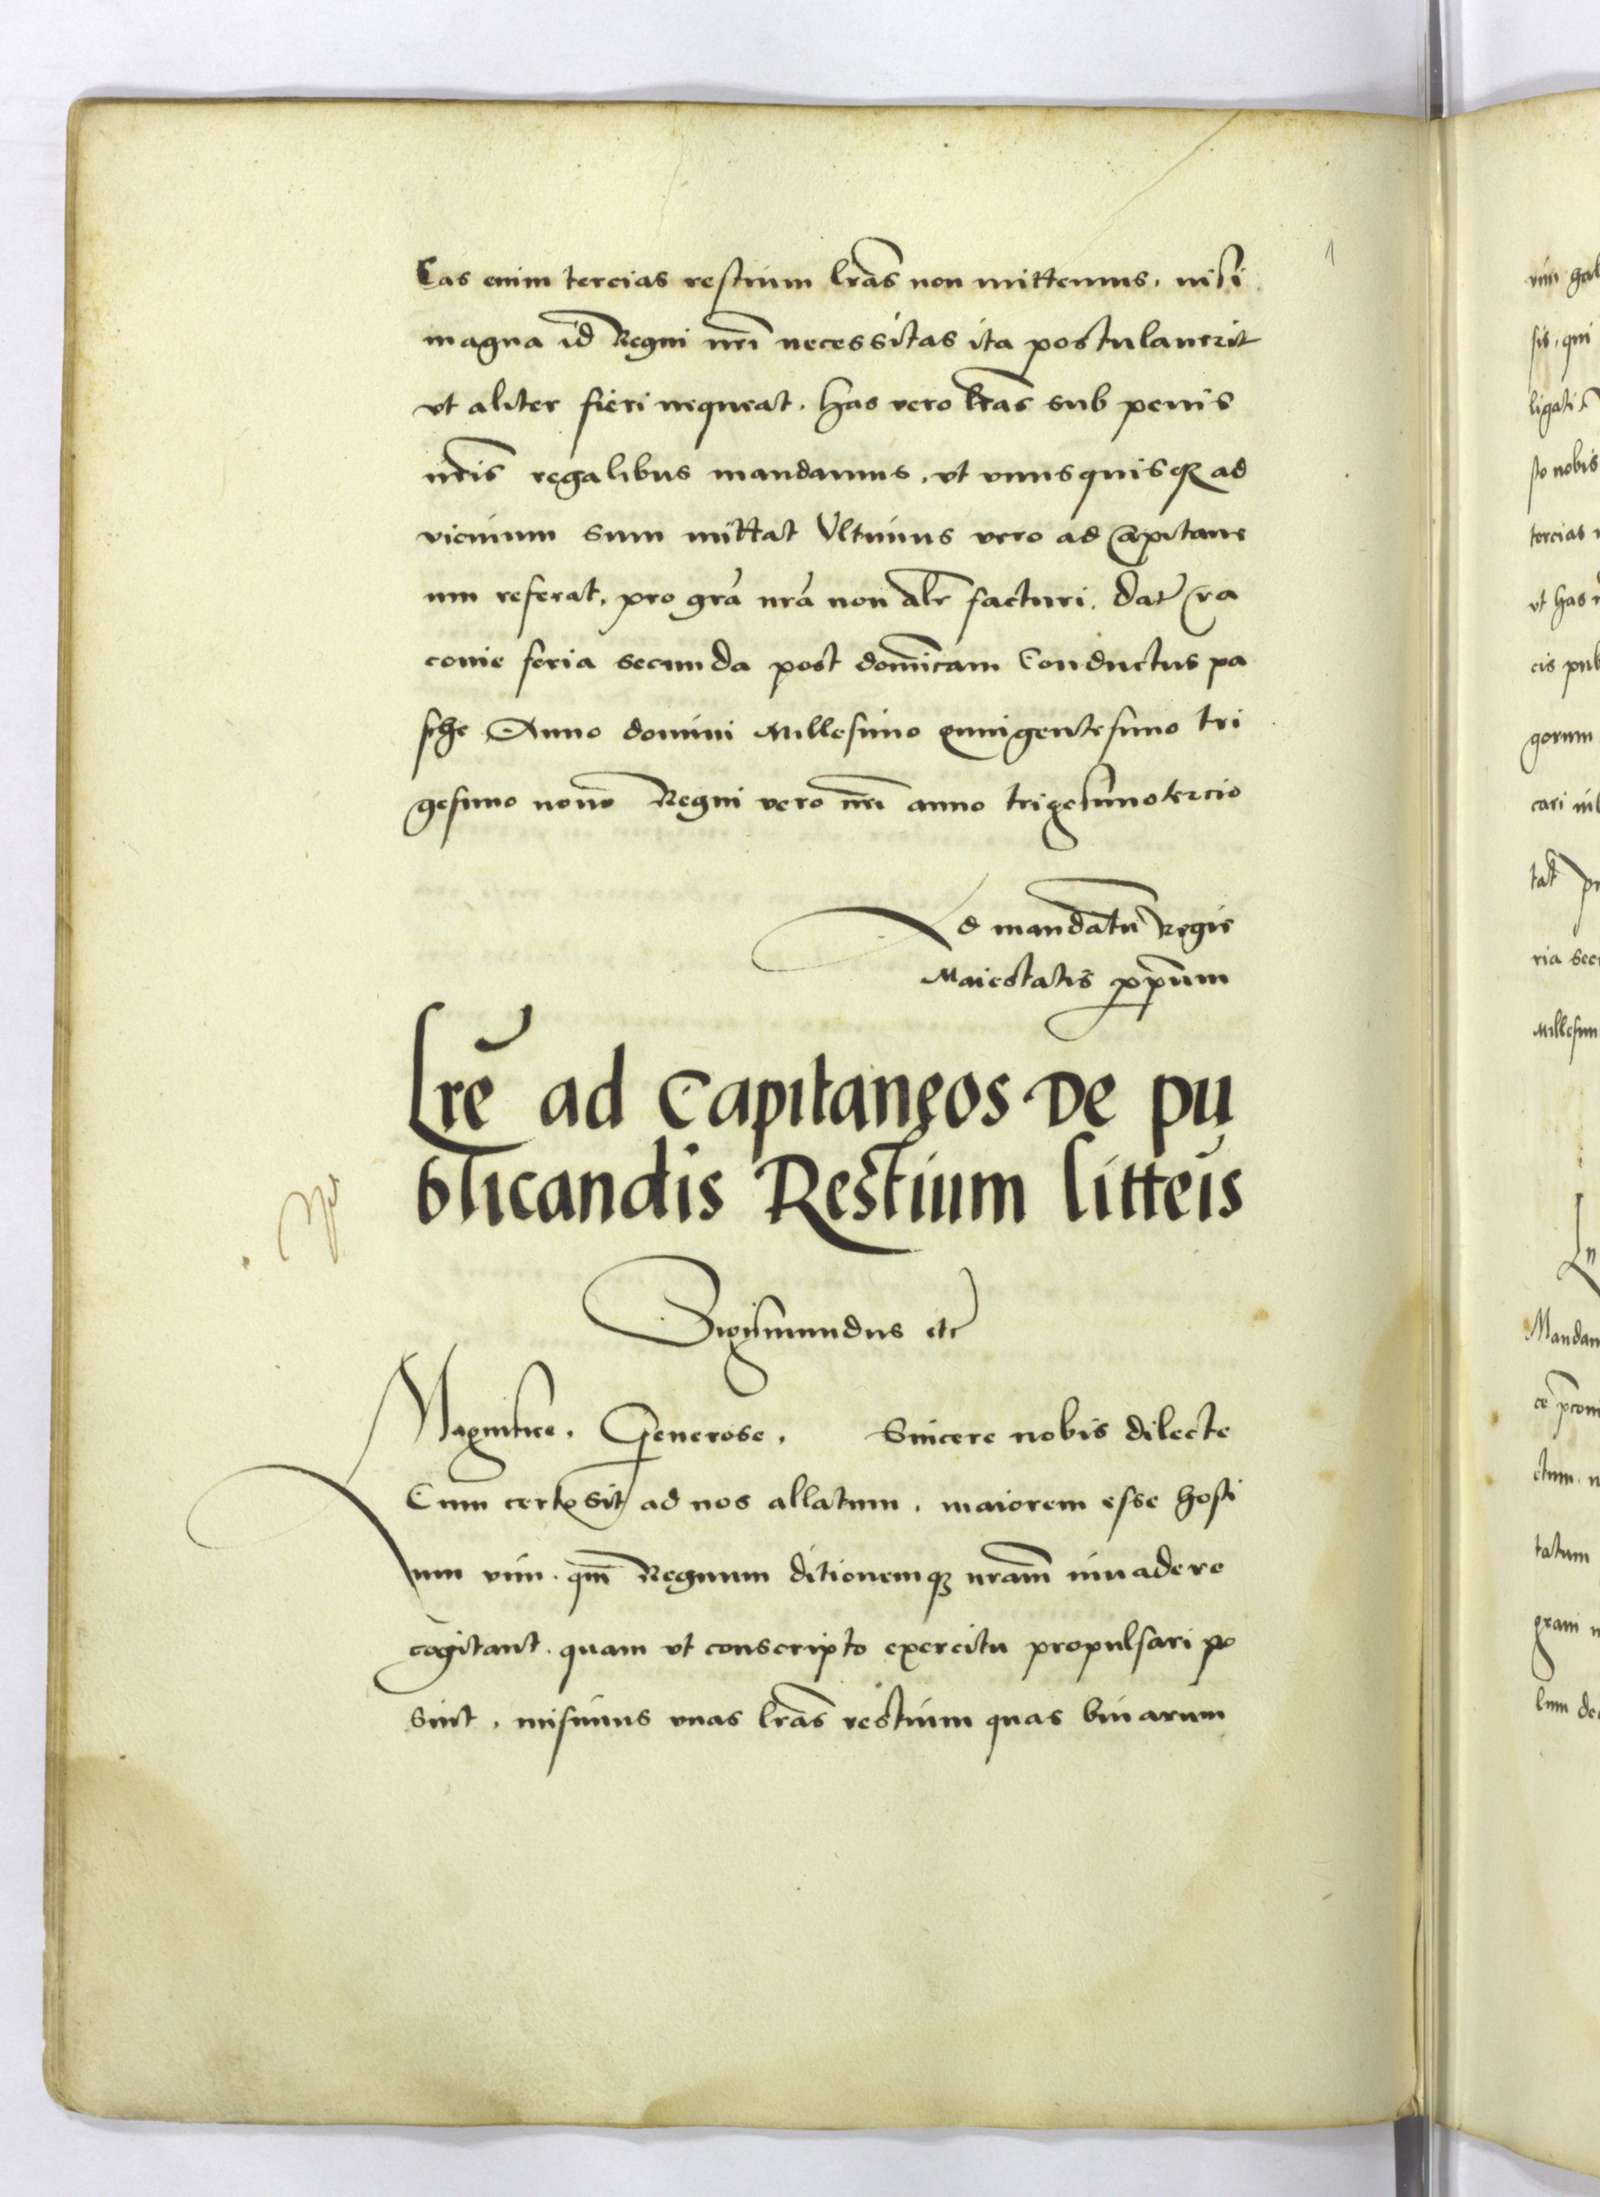 Eas enim tercias restium lras non mittemus, nisi
magna id Regni nri necessitas ita postulauerit
vt aliter fieri nequeat. Has vero lras sub penis
nris regalibus mandamus, vt vnusquisqz ad
vicinum suum mittat Vltimus vero ad Capitane
um referat, pro gra nra non alr facturi. Dat Cra
couie feria secunda post dominicam Conductus pa
sche Anno domini Millesimo quingentesimo tri
gesimo nono Regni vero nri anno trigesimotercio
Ad mandatum Regie
Maiestatis ppium
Lre ad Capitaneos De pu
blicandis Restium litteis
Sigismundus etc
Magnifice, Generose, Sincere nobis dilecte
Cum certo sit ad nos allatum, maiorem esse hosti
um vim. qui Regnum ditionemqz nram inuadere
cogitant. quam vt conscripto exercitu propulsari po
sint, misimus vnas lras restium quas binarum